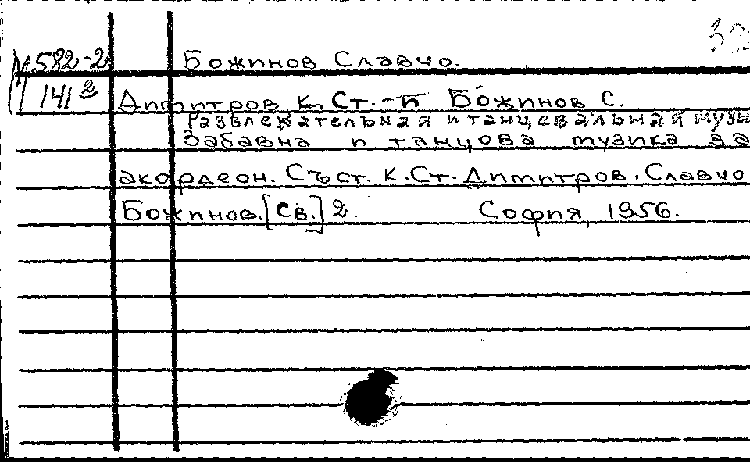 М582-2 Божинов Славчо.
141
Димитров К. Ст. - и Божинов С.
Развлекательная и танцевальная музы
Забавна и танцова музика за
акордеон. Съст. К. Ст. Димитров. Славчо
Божинов. [Св.] 2. София, 1956.